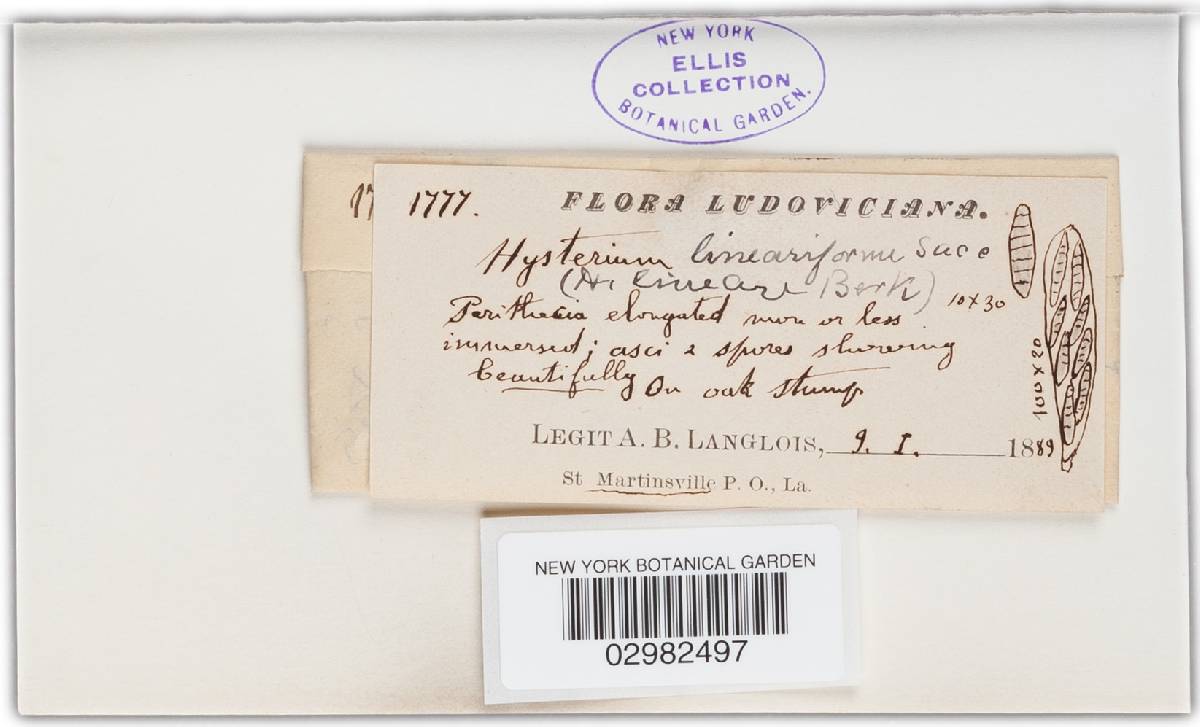 NEW YORK
ELLIS
COLLECTION
BOTANICAL GARDEN.
17
1777.
FLORA LUDOVICIANA.
Hysterium lineariforme Sacc
(H. lineare Berk)
Perithecia elongated more or less
10 x 30
immersed; asci & spores showing
beautifully On oak stump
100 x 20
LEGIT A. B. LANGLOIS, 9. I. 1889
St Martinsville P. O., La.
NEW YORK BOTANICAL GARDEN
02982497